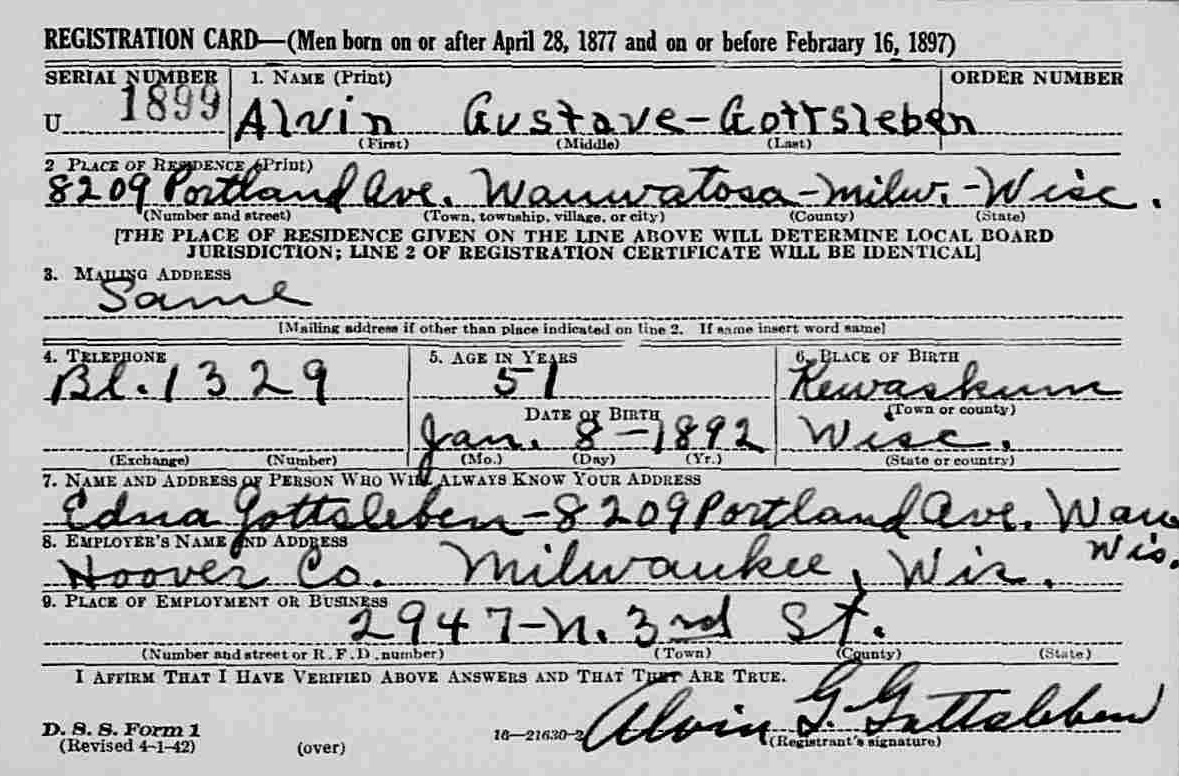 REGISTRATION CARD—(Men born on or after April 28, 1877 and on or before February 16, 1897)
SERIAL NUMBER 1. NAME (Print) ORDER NUMBER
U 1899 Alvin Gustave-Gottsleben
(First) (Middle) (Last)
2 PLACE OF RESIDENCE (Print)
8209 Portland Ave. Wauwatosa-Milw.-Wisc.
(Number and street) (Town, township, village, or city) (County) (State)
[THE PLACE OF RESIDENCE GIVEN ON THE LINE ABOVE WILL DETERMINE LOCAL BOARD
JURISDICTION; LINE 2 OF REGISTRATION CERTIFICATE WILL BE IDENTICAL]
3. MAILING ADDRESS
Same
[Mailing address if other than place indicated on line 2. If same insert word same]
4. TELEPHONE 5. AGE IN YEARS 6. PLACE OF BIRTH
Bl. 1329 51 Kewaskum
DATE OF BIRTH (Town or county)
Jan. 8-1892 Wisc.
(Exchange) (Number) (Mo.) (Day) (Yr.) (State or country)
7. NAME AND ADDRESS OF PERSON WHO WILL ALWAYS KNOW YOUR ADDRESS
Edna Gottsleben-8209 Portland Ave. Wau
Wis.
8. EMPLOYER'S NAME AND ADDRESS
Hoover Co. Milwaukee, Wis.
9. PLACE OF EMPLOYMENT OR BUSINESS
2947-N. 3rd St.
(Number and street or R. F. D. number) (Town) (County) (State)
I AFFIRM THAT I HAVE VERIFIED ABOVE ANSWERS AND THAT THEY ARE TRUE.
Alvin G. Gottsleben
D. S. S. Form 1
(Revised 4-1-42) (over) 16—21630-2 (Registrant's signature)